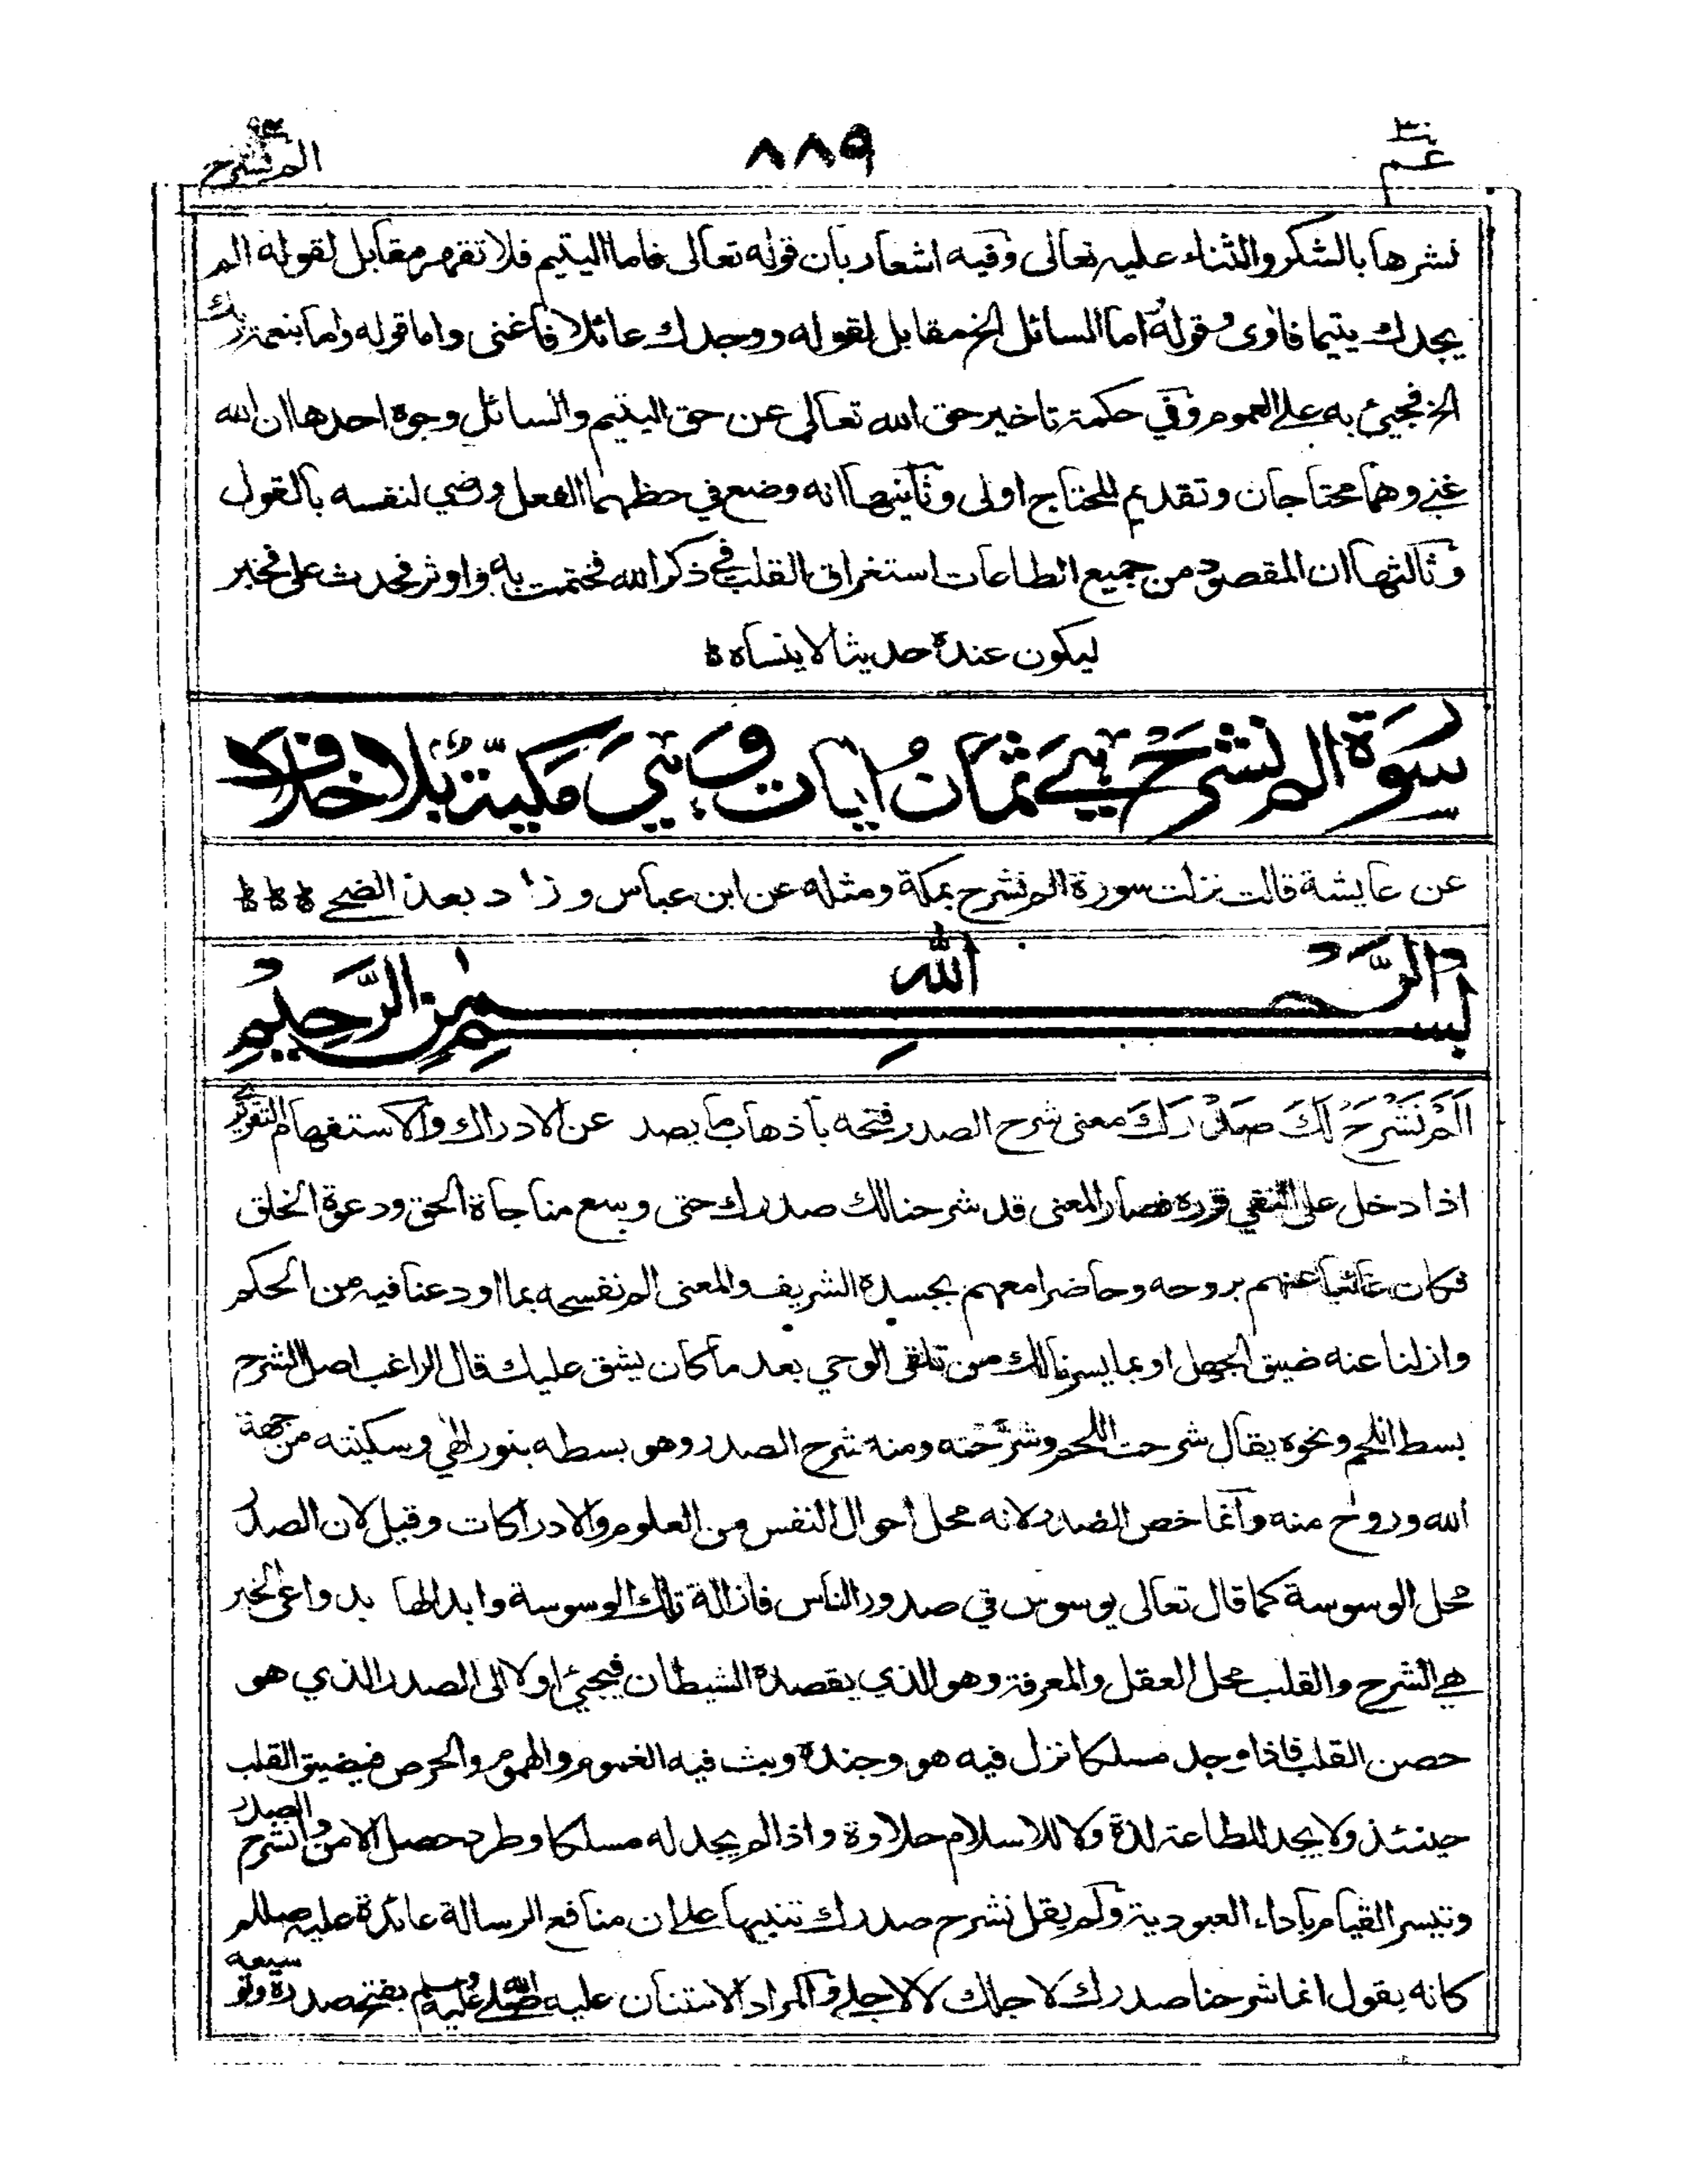 عم ٣٠
٨٨٩
الم نشرح ٩٤
نشرها بالشكر والثناء عليه تعالى وفيه اشعار بان قوله تعالى فاما اليتيم فلا تقهر مقابل لقوله الم
يجدك يتيما فاوى وقوله اما السائل الخ مقابل لقوله ووجدك عائلا فاغنى واما قوله واما بنعمة ربك
الخ فجيئ به على العموم وفي حكمة تاخير حق الله تعالى عن حق اليتيم والسائل وجوه احدها ان الله
غني وهما محتاجان وتقديم المحتاج اولى وثانيها انه وضع في حظهما الفعل ورضي لنفسه بالقول
وثالثها ان المقصود من جميع الطاعات استغراق القلب في ذكر الله فختمت به واوثر فحدث على فخبر
ليكون عنده حديثا لا ينساه
سورة الم نشرح هي ثمان ايات وهي مكية بلا خلاف
عن عايشة قالت نزلت سورة الم نشرح بمكة ومثله عن ابن عباس وزاد بعد الضحى
بسم الله الرحمن الرحيم
اَلَمْ نَشْرَحْ لَكَ صَدْرَكَ معنى شرح الصدر فتحه باذهاب ما يصد عن الادراك والاستفهام التقريري
اذا دخل على النفي قرره فصار المعنى قد شرحنا لك صدرك حتى وسع مناجاة الحق ودعوة الخلق
فكان غائبا عنهم بروحه وحاضرا معهم بجسده الشريف والمعنى الم نفسحه بما اودعنا فيه من الحكم
وازلنا عنه ضيق الجهل او بما يسرنا لك من تلقي الوحي بعد ما كان يشق عليك قال الراغب اصل الشرح
بسط اللحم ونحوه يقال شرحت اللحم وشرّحته ومنه شرح الصدر وهو بسطه بنور الهي وسكينته من جهة
الله وروح منه وانما خص الصدر لانه محل احوال النفس من العلوم والادراكات وقيل لان الصدر
محل الوسوسة كما قال تعالى يوسوس في صدور الناس فازالة تلك الوسوسة وابدالها بدواعي الخير
هي الشرح والقلب محل العقل والمعرفة وهو الذي يقصده الشيطان فيجيئ اولا الى الصدر الذي هو
حصن القلب فاذا وجد مسلكا نزل فيه هو وجنده وبث فيه الغموم والهموم والحرص فيضيق القلب
حينئذ ولا يجد للطاعة لذة ولا للاسلام حلاوة واذا لم يجد له مسلكا وطرد حصل الامن وانشرح الصدر
وتيسر القيام باداء العبودية ولم يقل نشرح صدرك تنبيها على ان منافع الرسالة عائدة عليه صللم
كانه يقول انما شرحنا صدرك لاجلك لا لاجلي والمراد الامتنان عليه صلى الله عليه وسلم بفتح صدره وتوسيعه